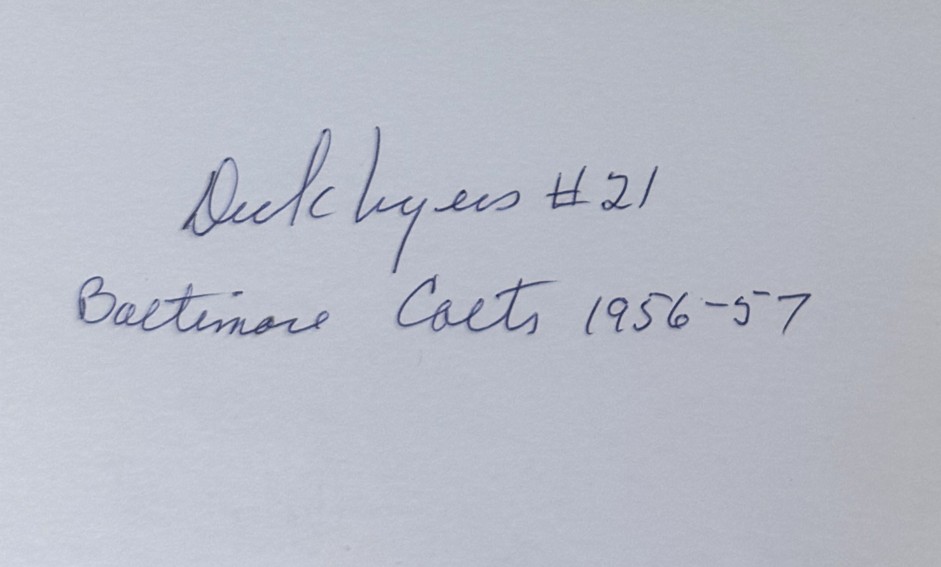 Dick Nyers #21
Baltimore Colts 1956-57